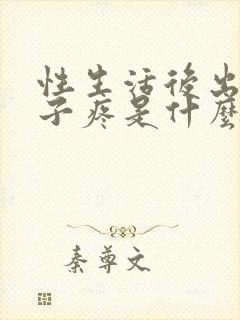 性生活後出
子疼是什麼
秦尊文